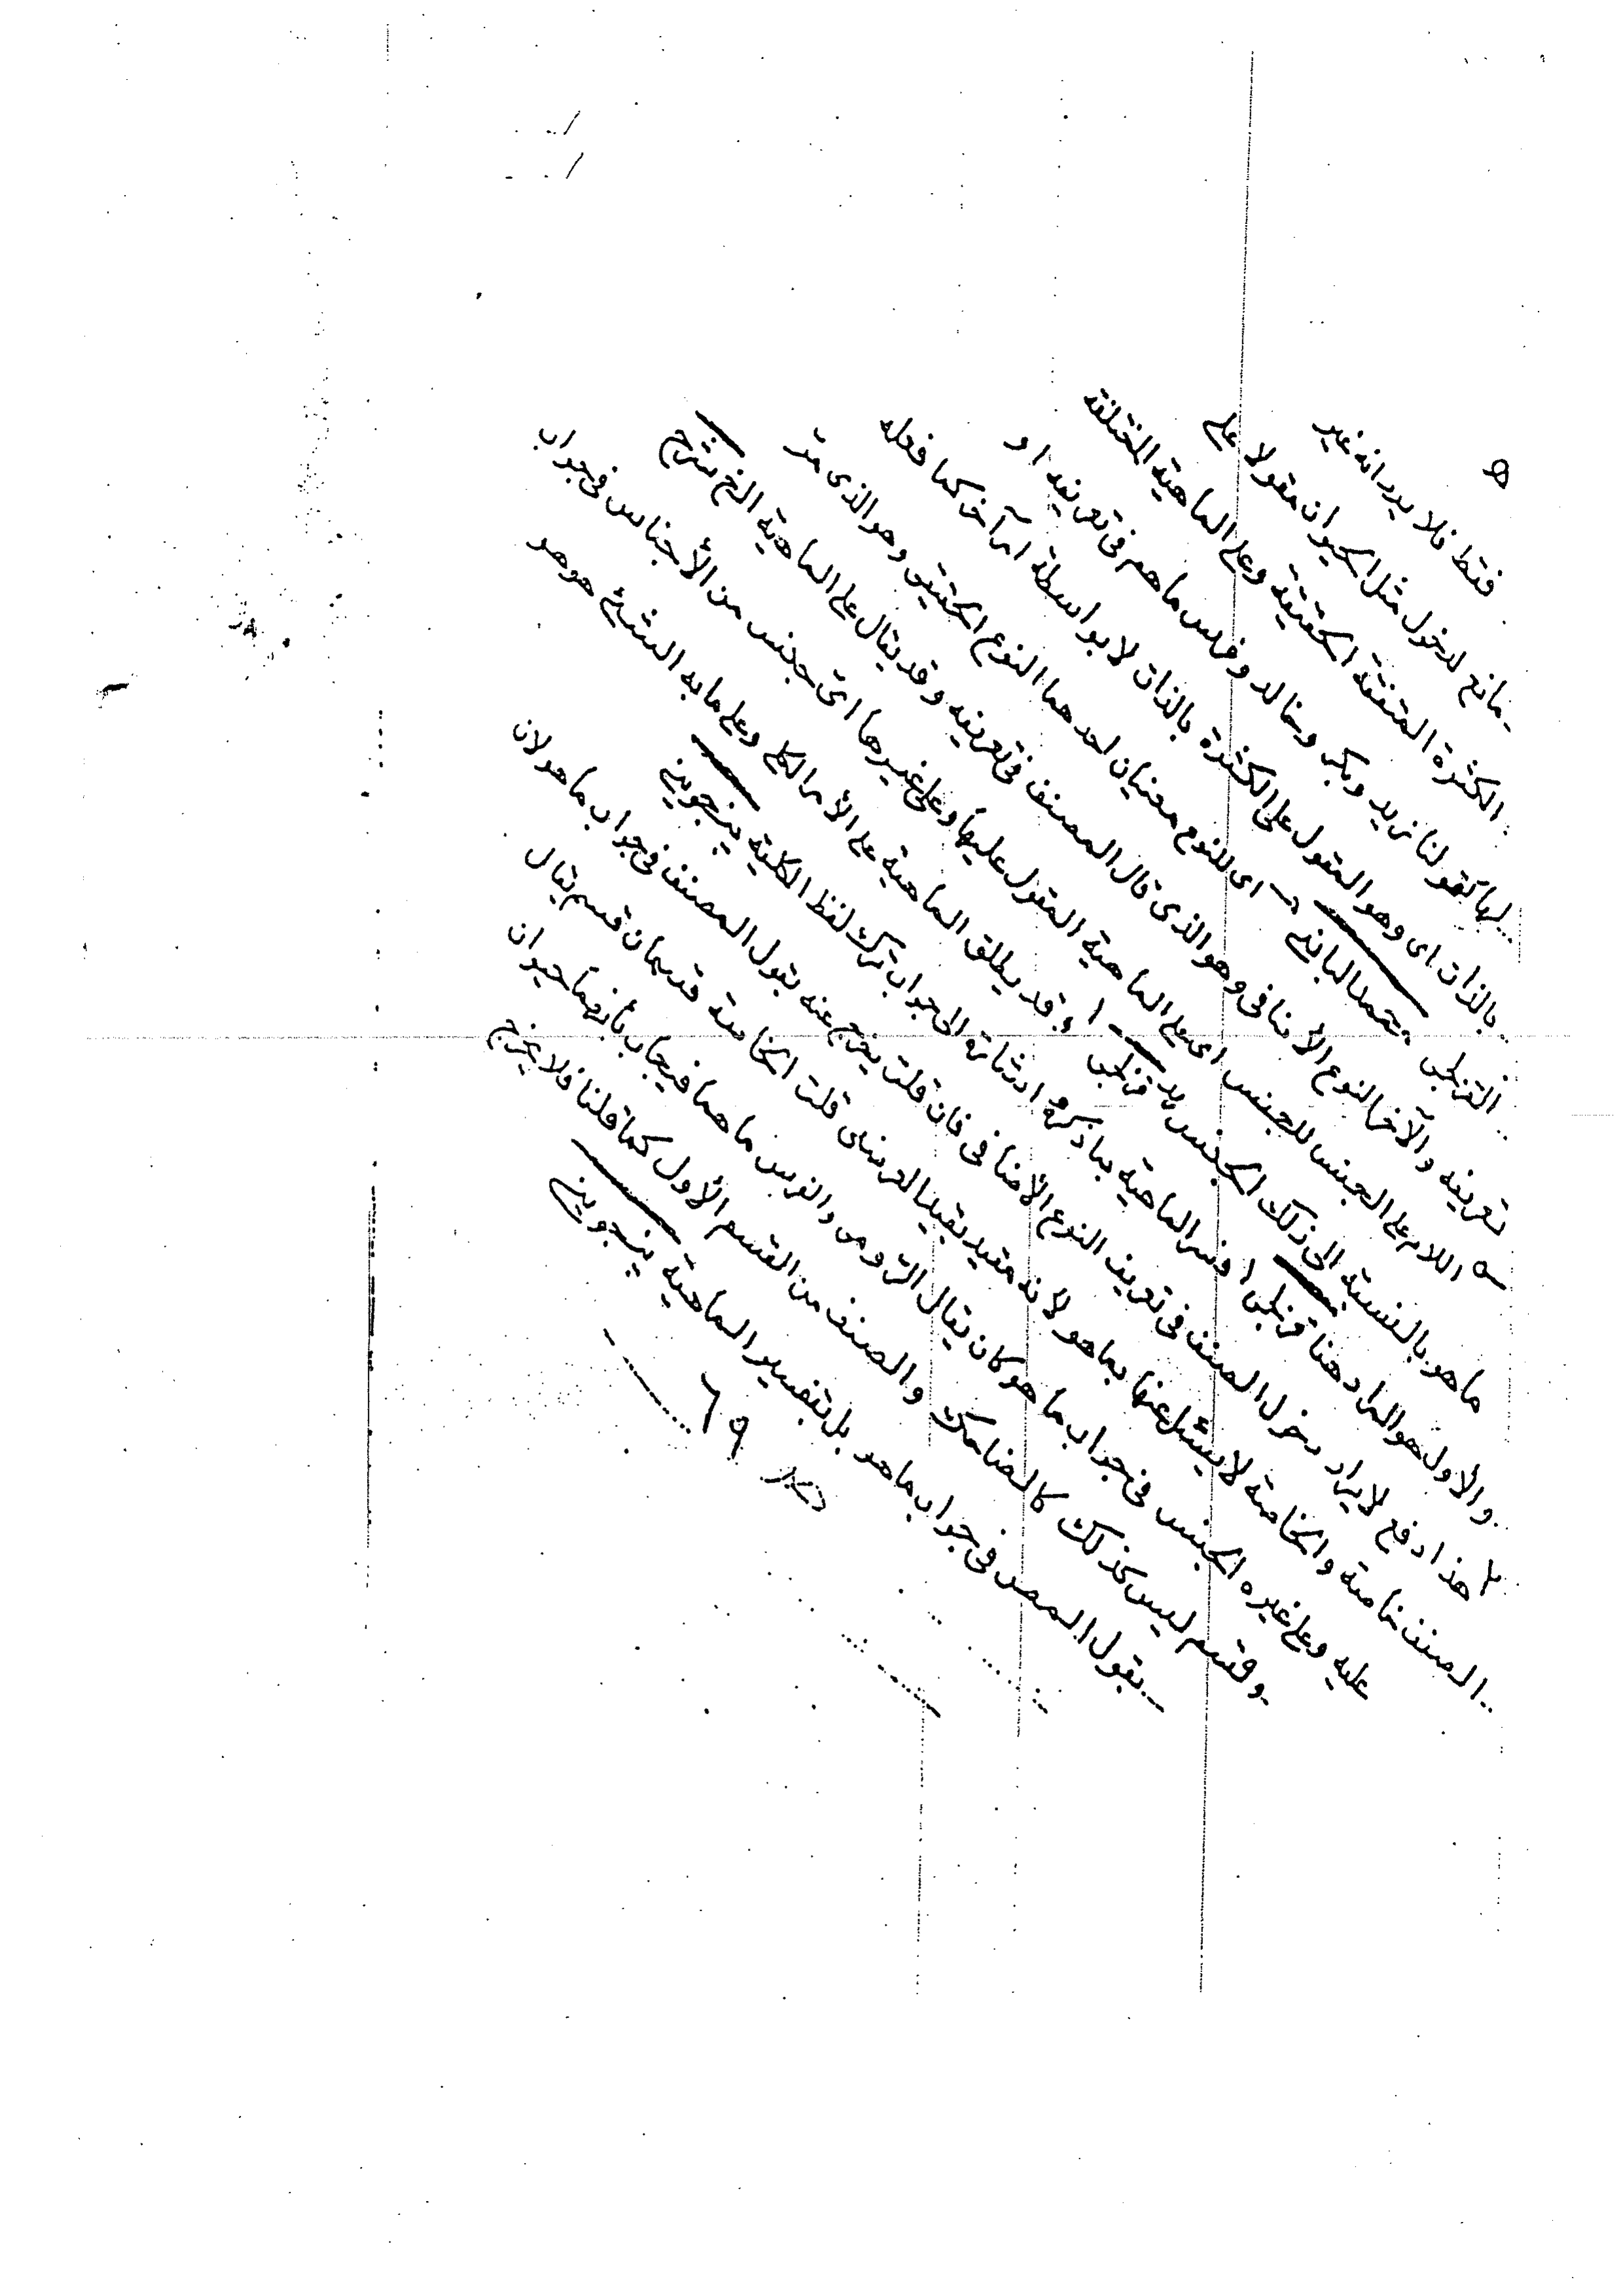 ه
فقط فلا يرد انه غير
مانع لدخول مثل الحيوان مقولا على
الكثرة المتفقة الحقيقة وعلى الماهية المختلفة
لها كقولنا زيد وبكر وخالد وفرس ماهم فى تعريفه او
بالذات اى وهو المقول على الكثرة بالذات لا بواسطة امر آخر كما فعله
القزلجى محمد الباني ــ اى للنوع معنيان احدهما النوع الحقيقى وهو الذى مرّ
تعريفه والآخر النوع الأضافى وهو الذى قال المصنف فى تعريفه وقد يقال على الماهية الخ شرح
اللام على الجنس للجنس اى على الماهية المقول عليها وعلى غيرها اىّ جنس من الأجناس فى جواب
ما هو بالنسبة الى ذلك الجنس قزلجى ١ وقد يطلق الماهية على الأمر الكلى وعلى ما به الشئ هو هو
والأول هو المراد هنا قزلجى ١ فسر الماهية بما ذكره اشارة الى جواب ترك لفظ الكلية پنجوينى
٢ هذا دفع لايراد دخول الصنف فى تعريف النوع الأضافى فان قلت يخرج عنه بقول المصنف فى جواب ما هو لان
الصنف خاصة والخاصة لا يسئل عنها بما هو لأنه مقيد بقيد العرضى قلت الخاصة قسمان قسم يقال
عليه وعلى غيره الجنس فى جواب ما هو كان يقال الرومى والفرس ما هما فيجاب بأنهما حيوان
وقسم ليس كذلك كالضاحك والصنف من القسم الأول كما قلنا فلا يخرج
بقول المصن فى جواب ما هو بل بتفسير الماهية پنجوينى
٦٩